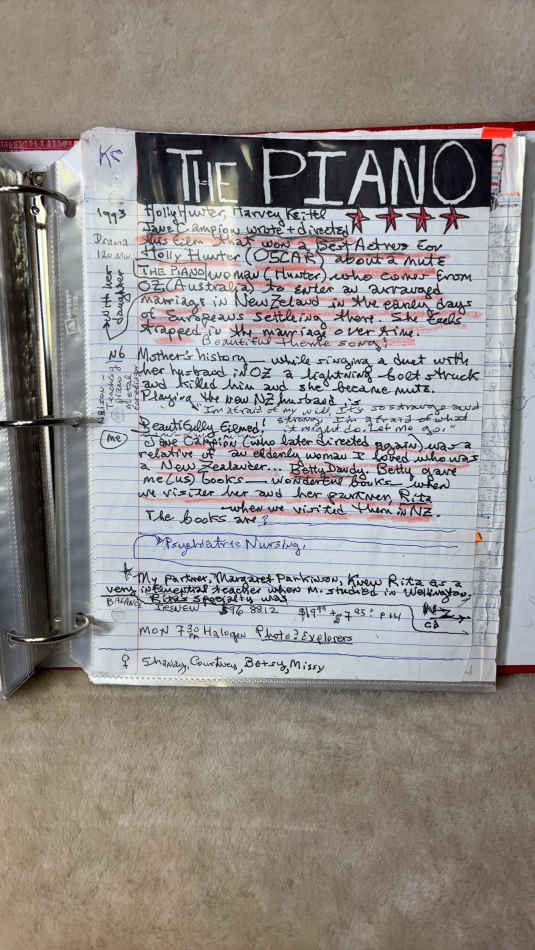 KS
THE PIANO
1993
Drama
with her
daughter
Holly Hunter, Harvey Keitel
Jane Campion wrote + directed
this film that won a Best Actress for
Holly Hunter (OSCAR) about a mute
THE PIANO woman (Hunter) who comes from
OZ (Australia) to enter an arranged
marriage in New Zeland in the early days
of Europeans settling there. She feels
trapped in the marriage over time.
Beautiful theme song!
Mother's history — while singing a duet with
her husband in OZ a lightning bolt struck
and killed him and she became mute.
Playing the new NZ husband is
"I'm afraid of my will, It's so strange and
strong. I'm afraid of what
it might do. Let me go."
Beautifully filmed!
me
Jane Campion (who later directed again) was a
relative of an elderly woman I loved who was
a New Zealander... Betty Dandy. Betty gave
me (us) books — wonderful books — when
we visited her and her partner, Rita
— when we visited them in NZ.
The books are:
Psychiatric Nursing.
My partner, Margaret Parkinson, knew Rita as a
very influential teacher when M. studied in Wellington.
Rita's specialty was
$96 8812
NZ
MON 7 30 Halogen Photo Explorers
Shanley, Courtney, Betsy, Missy